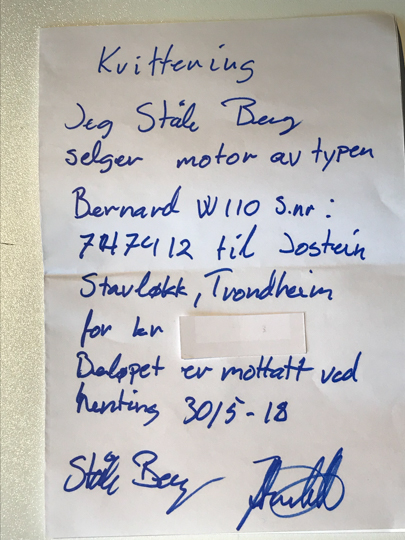 Kvittening
Jeg Ståle Berg
selger motor av typen
Bernard W110 S.nr:
7474112 til Jostein
Stavløkk, Trondheim
for kr
Beløpet er mottatt ved
henting 30/5-18
Ståle Berg